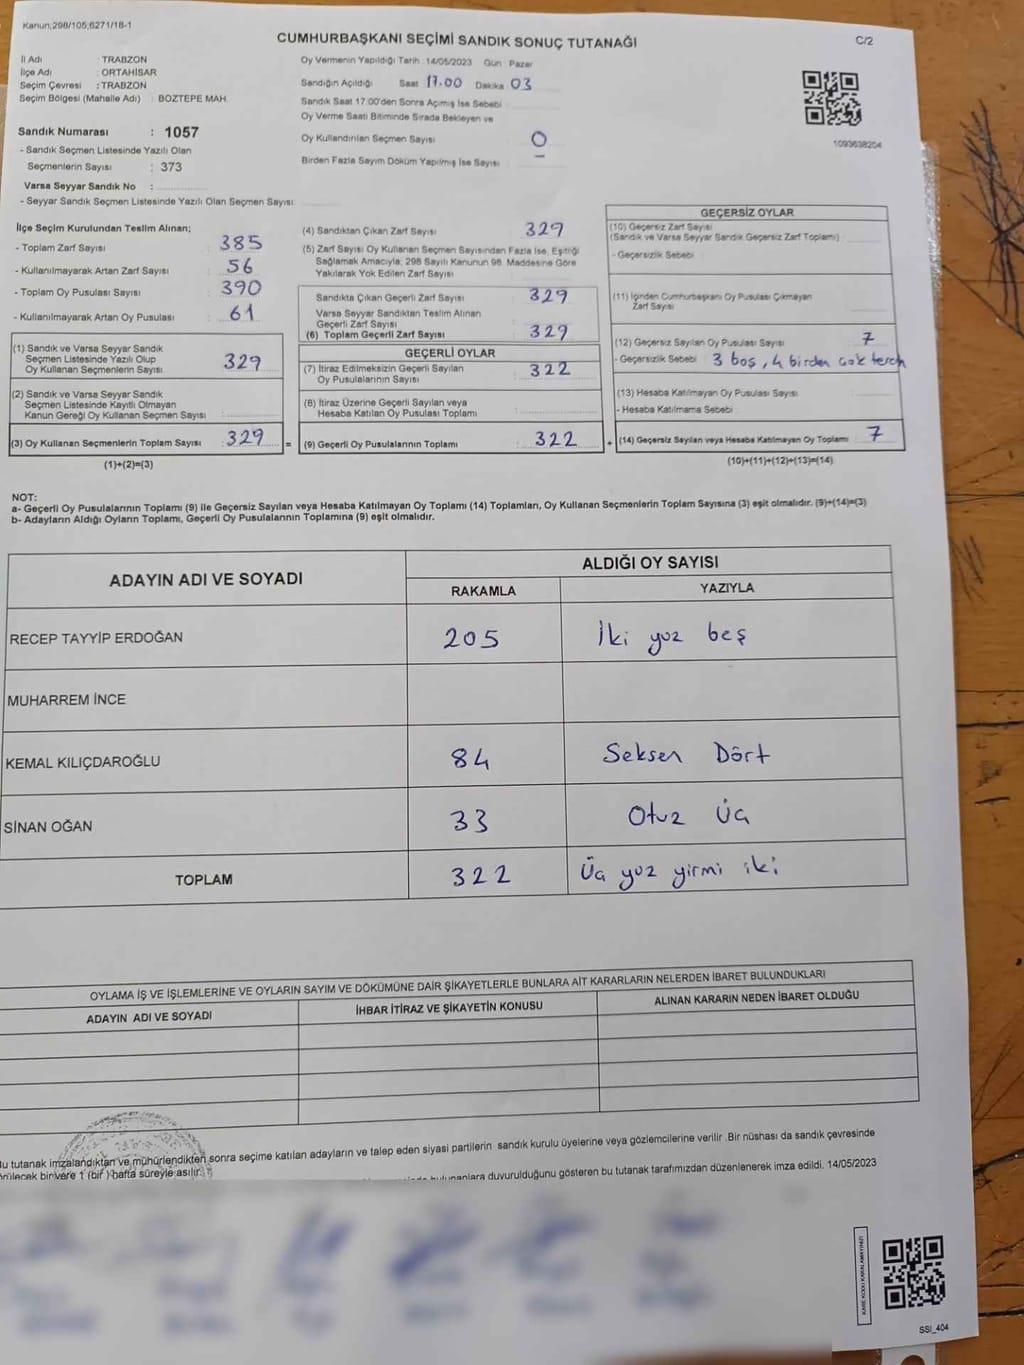 Kanun;298/105;6271/18-1
C/2
CUMHURBAŞKANI SEÇİMİ SANDIK SONUÇ TUTANAĞI
İl Adı : TRABZON
İlçe Adı : ORTAHİSAR
Seçim Çevresi : TRABZON
Seçim Bölgesi (Mahalle Adı) : BOZTEPE MAH.
Sandık Numarası : 1057
- Sandık Seçmen Listesinde Yazılı Olan
Seçmenlerin Sayısı : 373
Varsa Seyyar Sandık No :
- Seyyar Sandık Seçmen Listesinde Yazılı Olan Seçmen Sayısı:
Oy Vermenin Yapıldığı Tarih : 14/05/2023 Gün : Pazar
Sandığın Açıldığı Saat 17.00 Dakika 03
Sandık Saat 17.00'den Sonra Açmış İse Sebebi
Oy Verme Saati Bitiminde Sırada Bekleyen ve
Oy Kullandırılan Seçmen Sayısı 0
Birden Fazla Sayım Döküm Yapılmış İse Sayısı -
1093638204
İlçe Seçim Kurulundan Teslim Alınan;
- Toplam Zarf Sayısı : 385
- Kullanılmayarak Artan Zarf Sayısı : 56
- Toplam Oy Pusulası Sayısı : 390
- Kullanılmayarak Artan Oy Pusulası : 61
(1) Sandık ve Varsa Seyyar Sandık
Seçmen Listesinde Yazılı Olup
Oy Kullanan Seçmenlerin Sayısı : 329
(2) Sandık ve Varsa Seyyar Sandık
Seçmen Listesinde Kayıtlı Olmayan
Kanun Gereği Oy Kullanan Seçmen Sayısı :
(3) Oy Kullanan Seçmenlerin Toplam Sayısı : 329 =
(1)+(2)=(3)
(4) Sandıktan Çıkan Zarf Sayısı : 329
(5) Zarf Sayısı Oy Kullanan Seçmen Sayısından Fazla İse, Eşitliği
Sağlamak Amacıyla; 298 Sayılı Kanunun 98. Maddesine Göre
Yakılarak Yok Edilen Zarf Sayısı
Sandıkta Çıkan Geçerli Zarf Sayısı : 329
Varsa Seyyar Sandıktan Teslim Alınan
Geçerli Zarf Sayısı
(6) Toplam Geçerli Zarf Sayısı : 329
GEÇERLİ OYLAR
(7) İtiraz Edilmeksizin Geçerli Sayılan
Oy Pusulalarının Sayısı : 322
(8) İtiraz Üzerine Geçerli Sayılan veya
Hesaba Katılan Oy Pusulası Toplamı :
(9) Geçerli Oy Pusulalarının Toplamı : 322 +
GEÇERSİZ OYLAR
(10) Geçersiz Zarf Sayısı
(Sandık ve Varsa Seyyar Sandık Geçersiz Zarf Toplamı) :
- Geçersizlik Sebebi :
(11) İçinden Cumhurbaşkanı Oy Pusulası Çıkmayan
Zarf Sayısı
(12) Geçersiz Sayılan Oy Pusulası Sayısı 7
- Geçersizlik Sebebi : 3 boş, 4 birden çok terch
(13) Hesaba Katılmayan Oy Pusulası Sayısı
- Hesaba Katılmama Sebebi :
(14) Geçersiz Sayılan veya Hesaba Katılmayan Oy Toplamı : 7
(10)+(11)+(12)+(13)=(14)
NOT:
a- Geçerli Oy Pusulalarının Toplamı (9) ile Geçersiz Sayılan veya Hesaba Katılmayan Oy Toplamı (14) Toplamları, Oy Kullanan Seçmenlerin Toplam Sayısına (3) eşit olmalıdır. (9)+(14)=(3)
b- Adayların Aldığı Oyların Toplamı, Geçerli Oy Pusulalarının Toplamına (9) eşit olmalıdır.
ADAYIN ADI VE SOYADI
ALDIĞI OY SAYISI
RAKAMLA YAZIYLA
RECEP TAYYİP ERDOĞAN 205 İki yüz beş
MUHARREM İNCE
KEMAL KILIÇDAROĞLU 84 Seksen Dört
SİNAN OĞAN 33 Otuz Üç
TOPLAM 322 Üç yüz yirmi iki
OYLAMA İŞ VE İŞLEMLERİNE VE OYLARIN SAYIM VE DÖKÜMÜNE DAİR ŞİKAYETLERLE BUNLARA AİT KARARLARIN NELERDEN İBARET BULUNDUKLARI
ADAYIN ADI VE SOYADI İHBAR İTİRAZ VE ŞİKAYETİN KONUSU ALINAN KARARIN NEDEN İBARET OLDUĞU
Bu tutanak imzalandıktan ve mühürlendikten sonra seçime katılan adayların ve talep eden siyasi partilerin sandık kurulu üyelerine veya gözlemcilerine verilir .Bir nüshası da sandık çevresinde
bir yere 1 (bir ) hafta süreyle asılır. bulunanlara duyurulduğunu gösteren bu tutanak tarafımızdan düzenlenerek imza edildi. 14/05/2023
KARE KODU KARALAMAYINIZ!
SSI_404